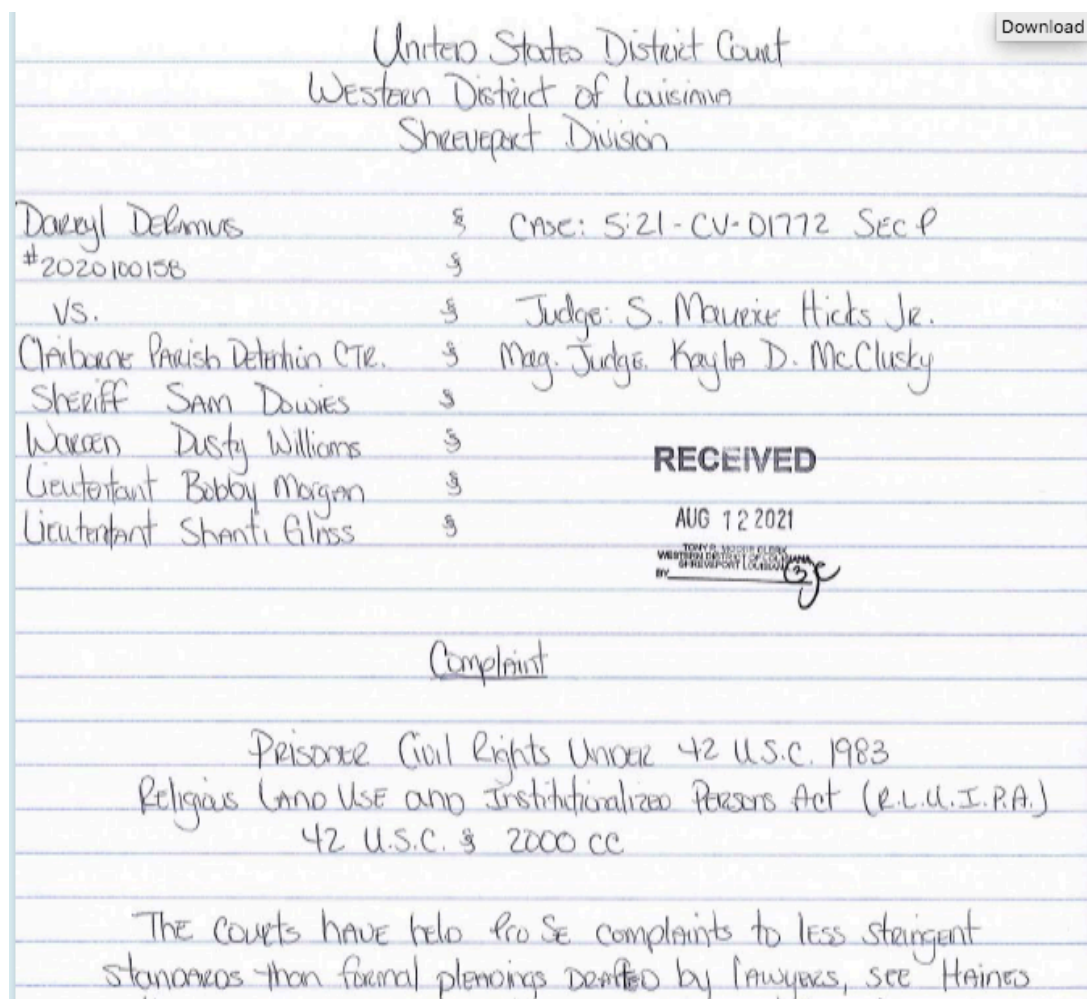 Download
United States District Court
Western District of Louisinia
Shreveport Division
Darryl Delmus § Case: 5:21-CV-01772 Sec P
#2020100158 §
vs. § Judge: S. Maurice Hicks Jr.
Claiborne Parish Detention CTR. § Mag. Judge. Kayla D. McClusky
Sheriff Sam Dowies §
Warden Dusty Williams §
Lieutentant Bobby Morgan §
Lieutentant Shanti Glass §
RECEIVED
AUG 12 2021
TONY R. MOORE CLERK
WESTERN DISTRICT OF LOUISIANA
SHREVEPORT LOUISIANA
BY
Complaint
Prisoner Civil Rights Under 42 U.S.C. 1983
Religious Land Use and Institutionalized Persons Act (R.L.U.I.P.A.)
42 U.S.C. § 2000 cc
The courts have held Pro Se complaints to less stringent
standards than formal pleadings drafted by lawyers, see Haines